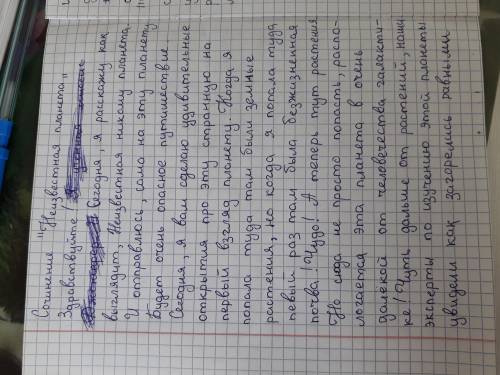 Сочинение "Неизвестная планета"
Здравствуйте!
Сегодня, я расскажу как
выглядит, Неизвестная никому планета.
И отправлюсь, сама на эту планету
Будет очень опасное путишествие
Сегодня, я вам сделаю удивительные
открытия про эту странную на
первый взгляд планету. Когда я
попала туда там были земные
растения, но когда я попала туда
певый раз там была безжизненная
почва! Чудо! А теперь тут растения
Но сюда не просто попасть, распо-
логается эта планета в очень
далёкой от человечества галакти-
ке! Чуть дальше от растений, наши
эксперты по изучению этой планеты
увидели как загорелись равными